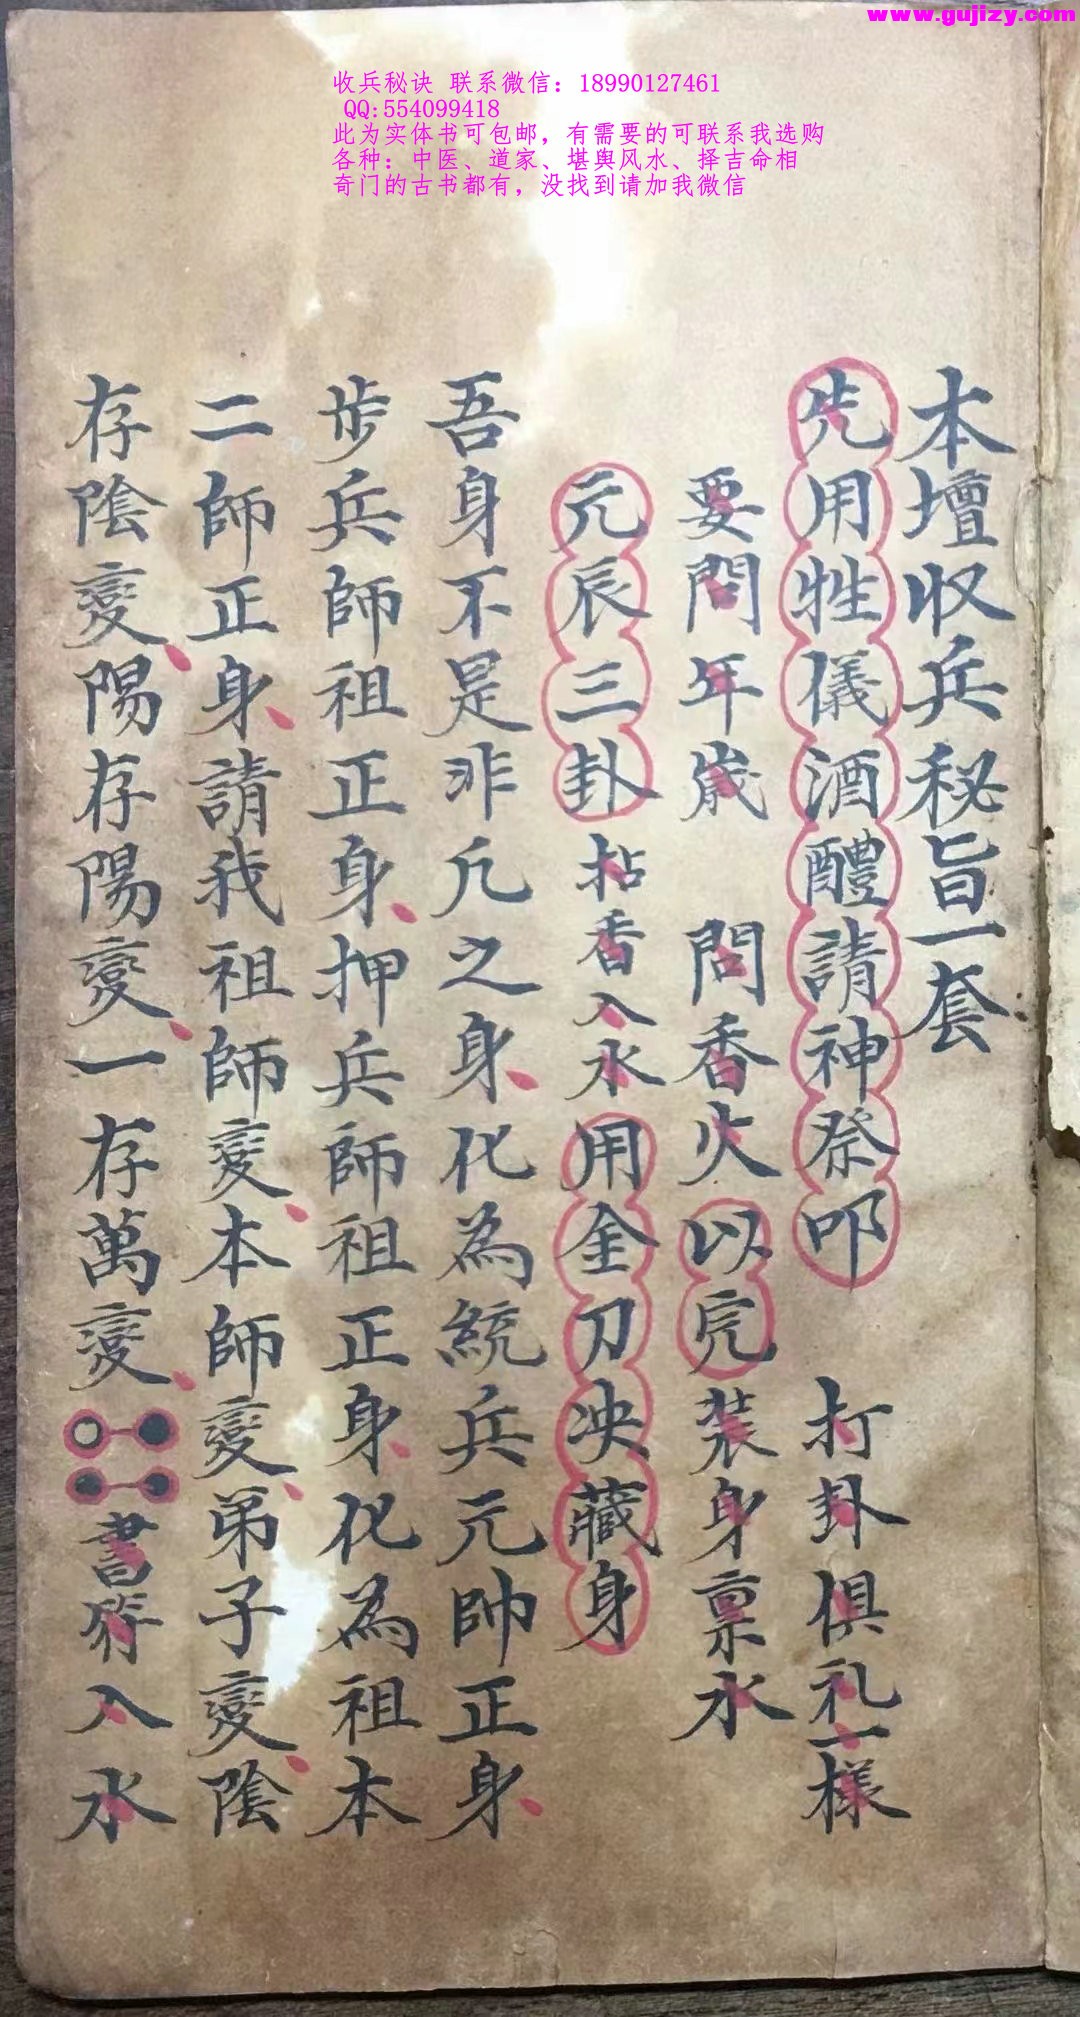 www.gujizy.com
收兵秘诀 联系微信：18990127461
QQ:554099418
此为实体书可包邮，有需要的可联系我选购
各种：中医、道家、堪舆风水、择吉命相
奇门的古书都有，没找到请加我微信
本壇収兵秘旨一套
先用牲儀酒醴請神祭叩 打卦俱礼一樣
要問年歲 問香火 以完 装身禀水
元辰三卦 拈香入水 用金刀决藏身
吾身不是非凢之身化為統兵元帥正身
步兵師祖正身押兵師祖正身化為祖本
二師正身請我祖師変本師変弟子変陰
存陰変陽存陽変一存萬変 書符入水